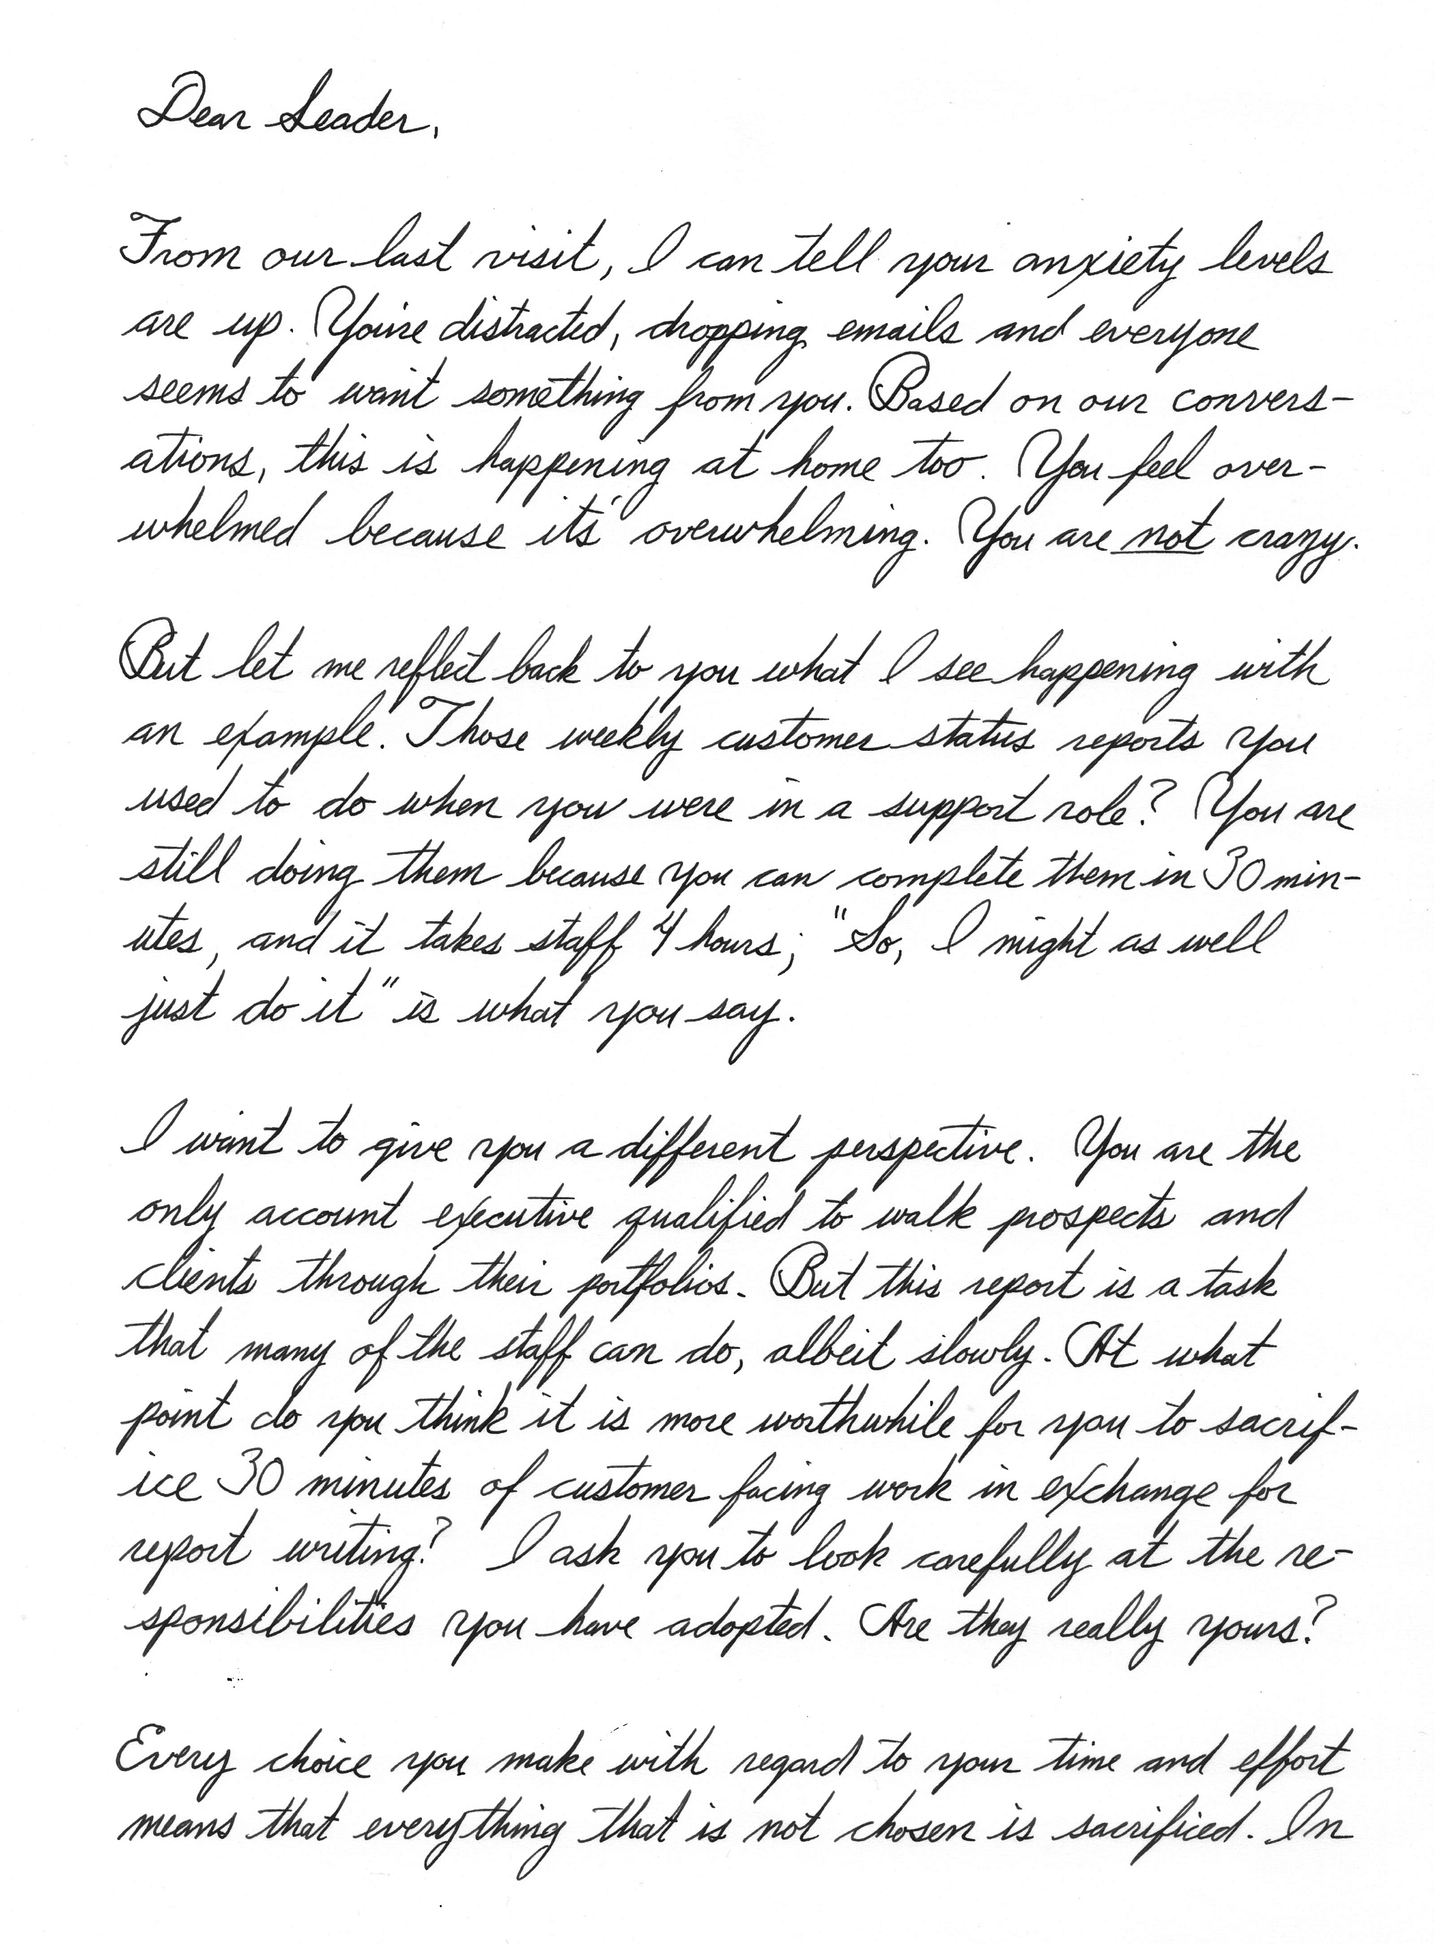 Dear Leader,
From our last visit, I can tell your anxiety levels
are up. You're distracted, dropping emails and everyone
seems to want something from you. Based on our convers-
ations, this is happening at home too. You feel over-
whelmed because it's overwhelming. You are not crazy.
But let me reflect back to you what I see happening with
an example. Those weekly customer status reports you
used to do when you were in a support role? You are
still doing them because you can complete them in 30 min-
utes, and it takes staff 4 hours; "So, I might as well
just do it" is what you say.
I want to give you a different perspective. You are the
only account executive qualified to walk prospects and
clients through their portfolios. But this report is a task
that many of the staff can do, albeit slowly. At what
point do you think it is more worthwhile for you to sacrif-
ice 30 minutes of customer facing work in exchange for
report writing? I ask you to look carefully at the re-
sponsibilities you have adopted. Are they really yours?
Every choice you make with regard to your time and effort
means that everything that is not chosen is sacrificed. In